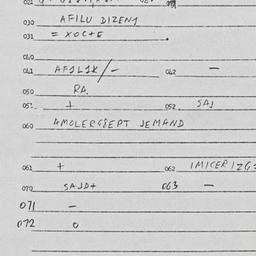 030 AFILU DIZENJ
031 = XOC+E
040
041 AF1L1K/- 042 -
050 RA
051 + 052 SAJ
060 4MOLERGSEPT JEMAND
061 + 062 IMICER/ZG
070 SAJD+ 063 -
071 -
072 0